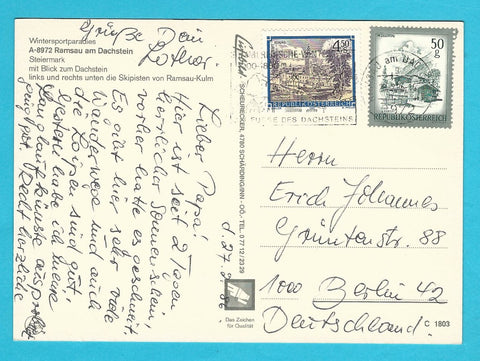 Wintersportparadies
A-8972 Ramsau am Dachstein
Steiermark
mit Blick zum Dachstein
links und rechts unten die Skipisten von Ramsau-Kulm
d. 27.
Lieber Papa!
Hier ist seit 2 Tagen
herrlicher Sonnenschein,
vorher hatte es geschneit
Es gibt hier sehr viele
Wanderwege und auch
die Loipen sind gut.
Gestern habe ich meine
Langlaufkünste
Recht herzliche
Grüße Dein
Lothar.
SCHÄRDING/INN
TEL. 0 77 12/23 29
4.50
REPUBLIK ÖSTERREICH
50
g
REPUBLIK ÖSTERREICH
FUSSE DES DACHSTEINS
Herrn
Erich Johannes
Grüntenstr. 88
1000 Berlin 42
Deutschland.
Das Zeichen
für Qualität
C 1803